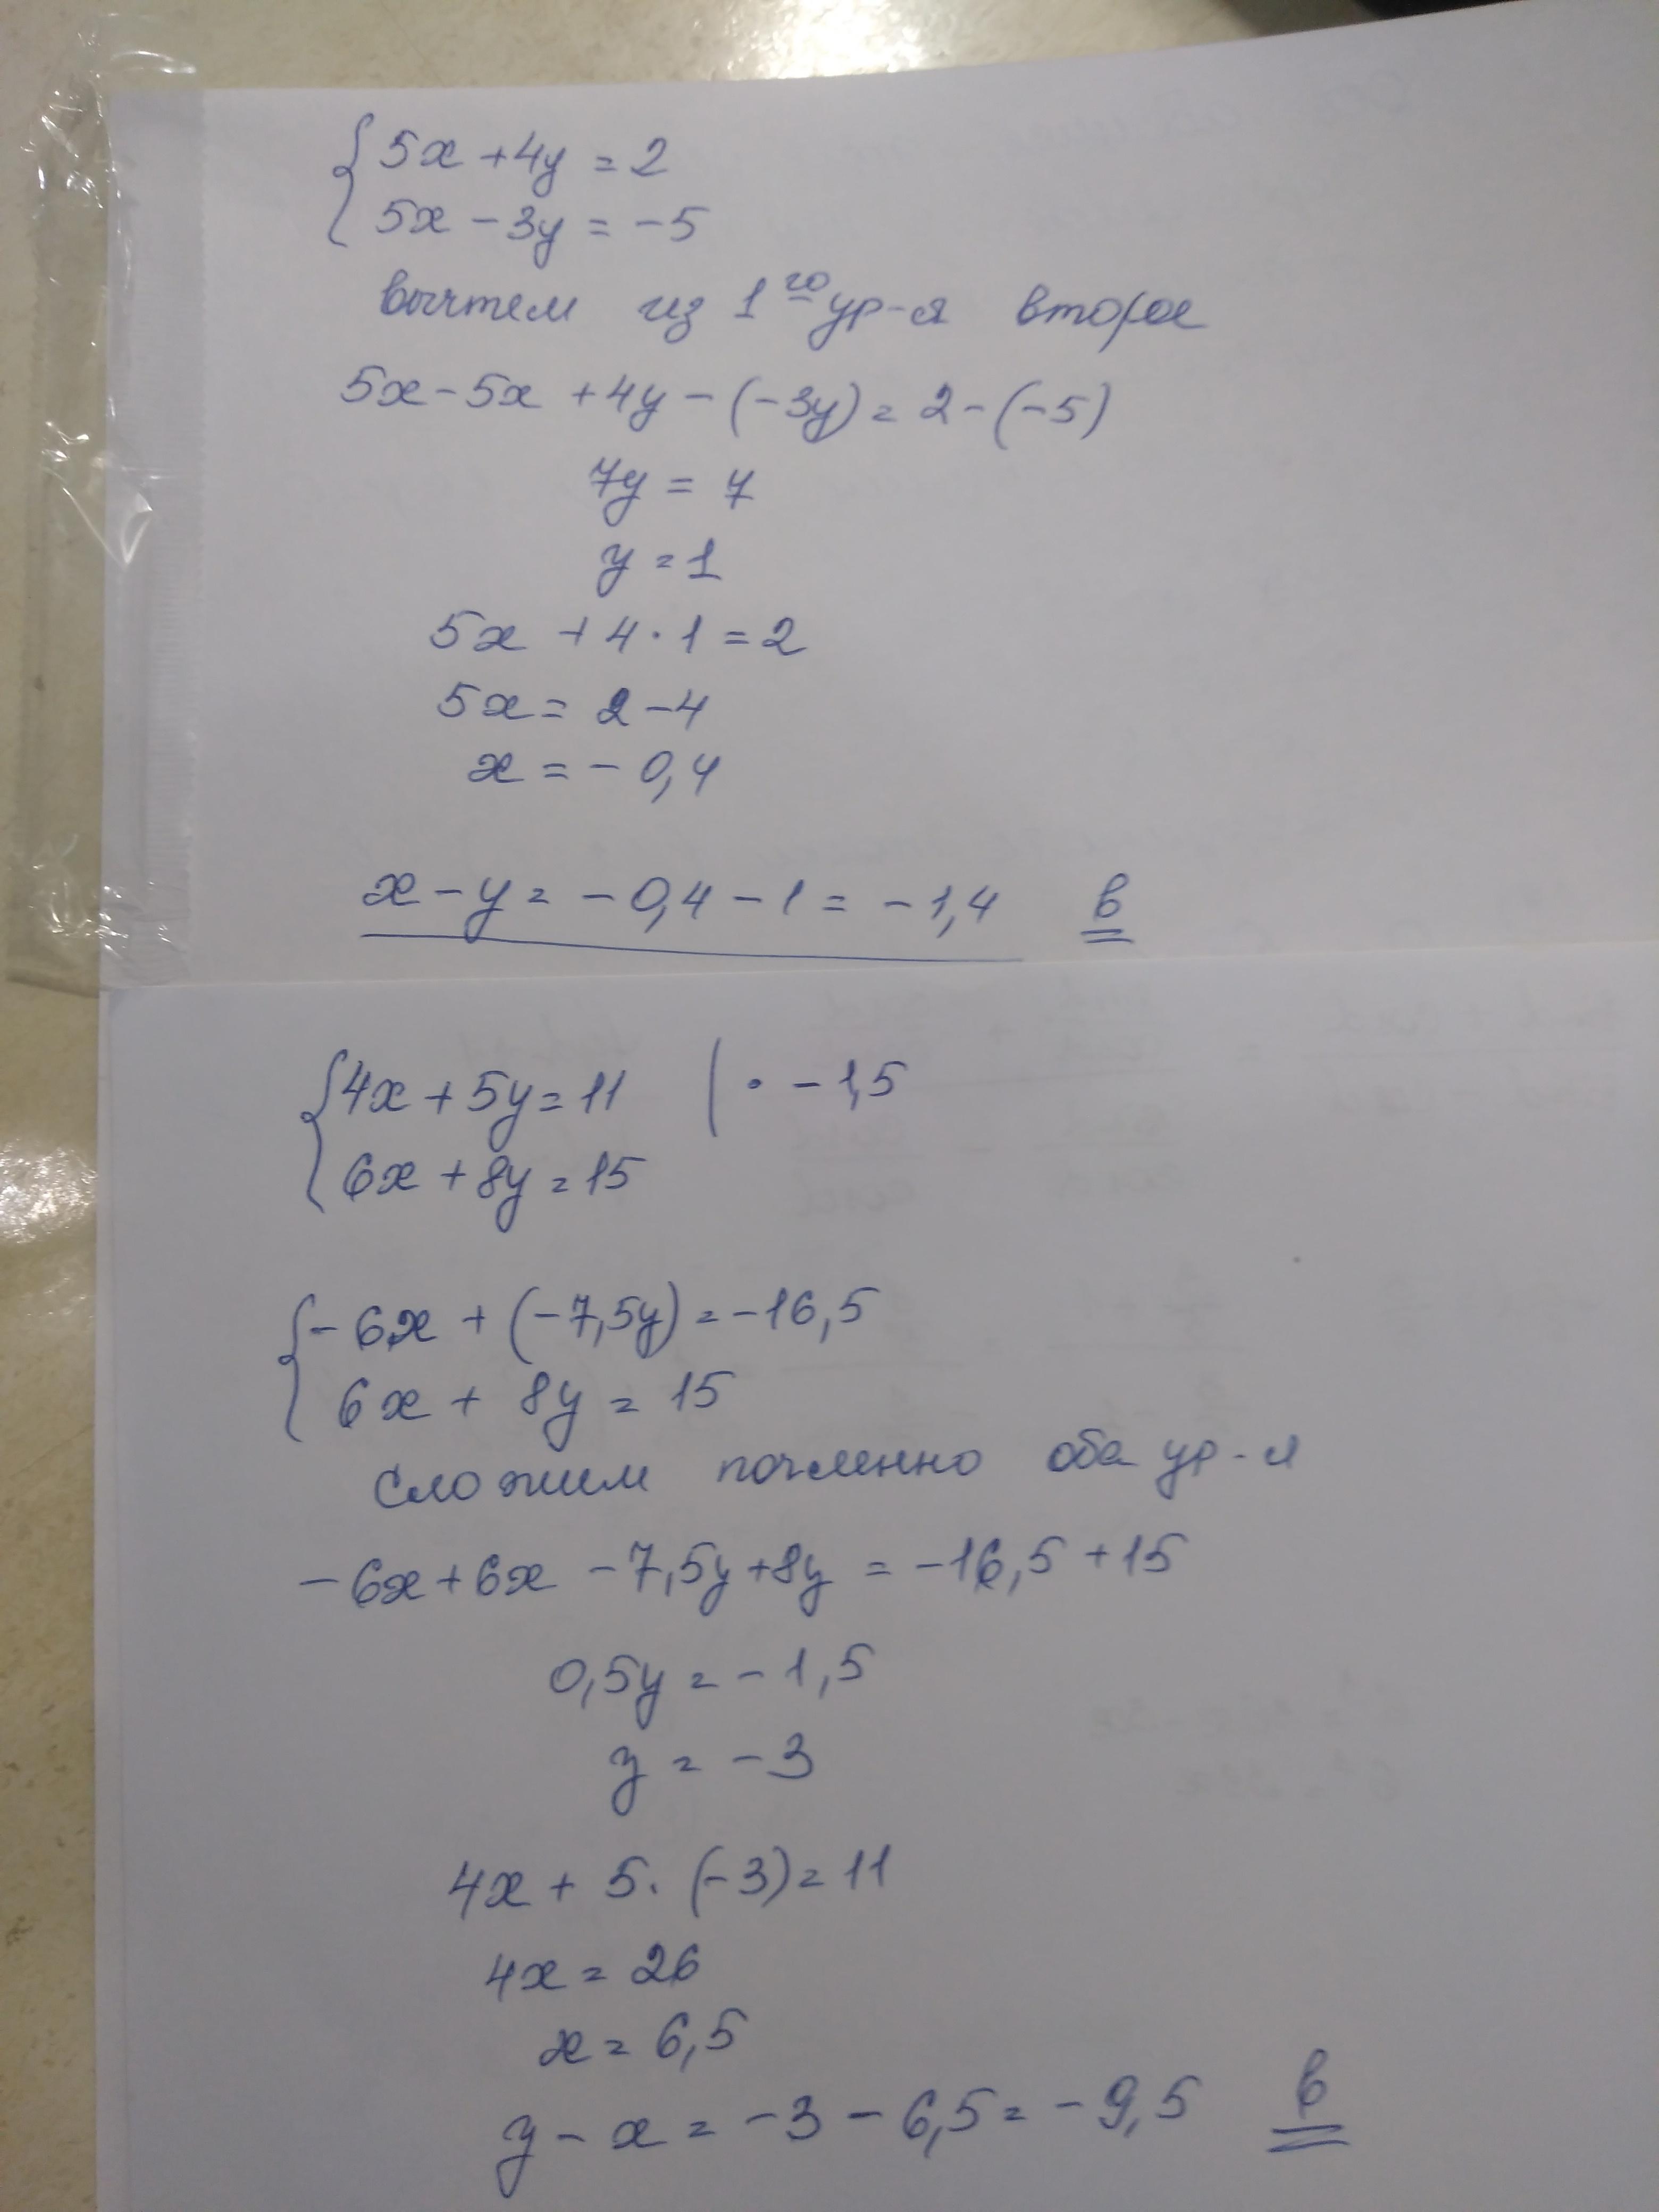 5x + 4y = 2
5x - 3y = -5
вычтем из 1го ур-я второе
5x - 5x + 4y - (-3y) = 2 - (-5)
7y = 7
y = 1
5x + 4 · 1 = 2
5x = 2 - 4
x = - 0,4
x - y = - 0,4 - 1 = - 1,4 в
4x + 5y = 11 | · - 1,5
6x + 8y = 15
- 6x + (-7,5y) = -16,5
6x + 8y = 15
Сложим почленно оба ур-я
- 6x + 6x - 7,5y + 8y = -16,5 + 15
0,5y = - 1,5
y = - 3
4x + 5 · (-3) = 11
4x = 26
x = 6,5
y - x = - 3 - 6,5 = - 9,5 в